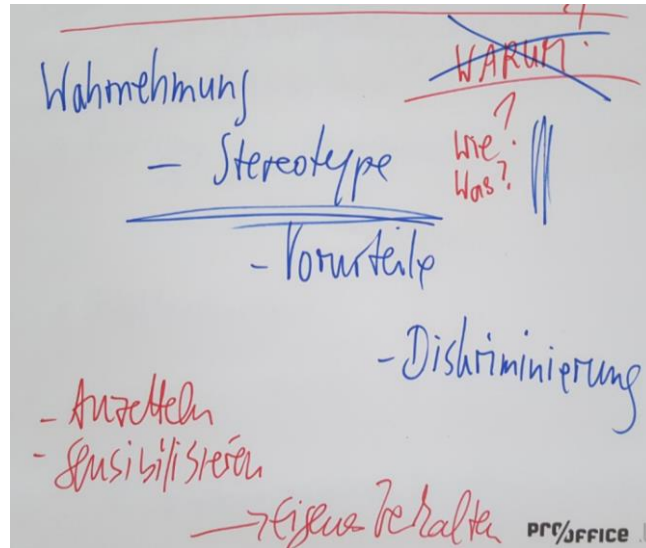 Wahrnehmung
WARUM?
- Stereotype
wie?
Was?
- Vorurteile
- Diskriminierung
- Anzetteln
- Sensibilisieren
→ eigenes Verhalten
PRO/OFFICE